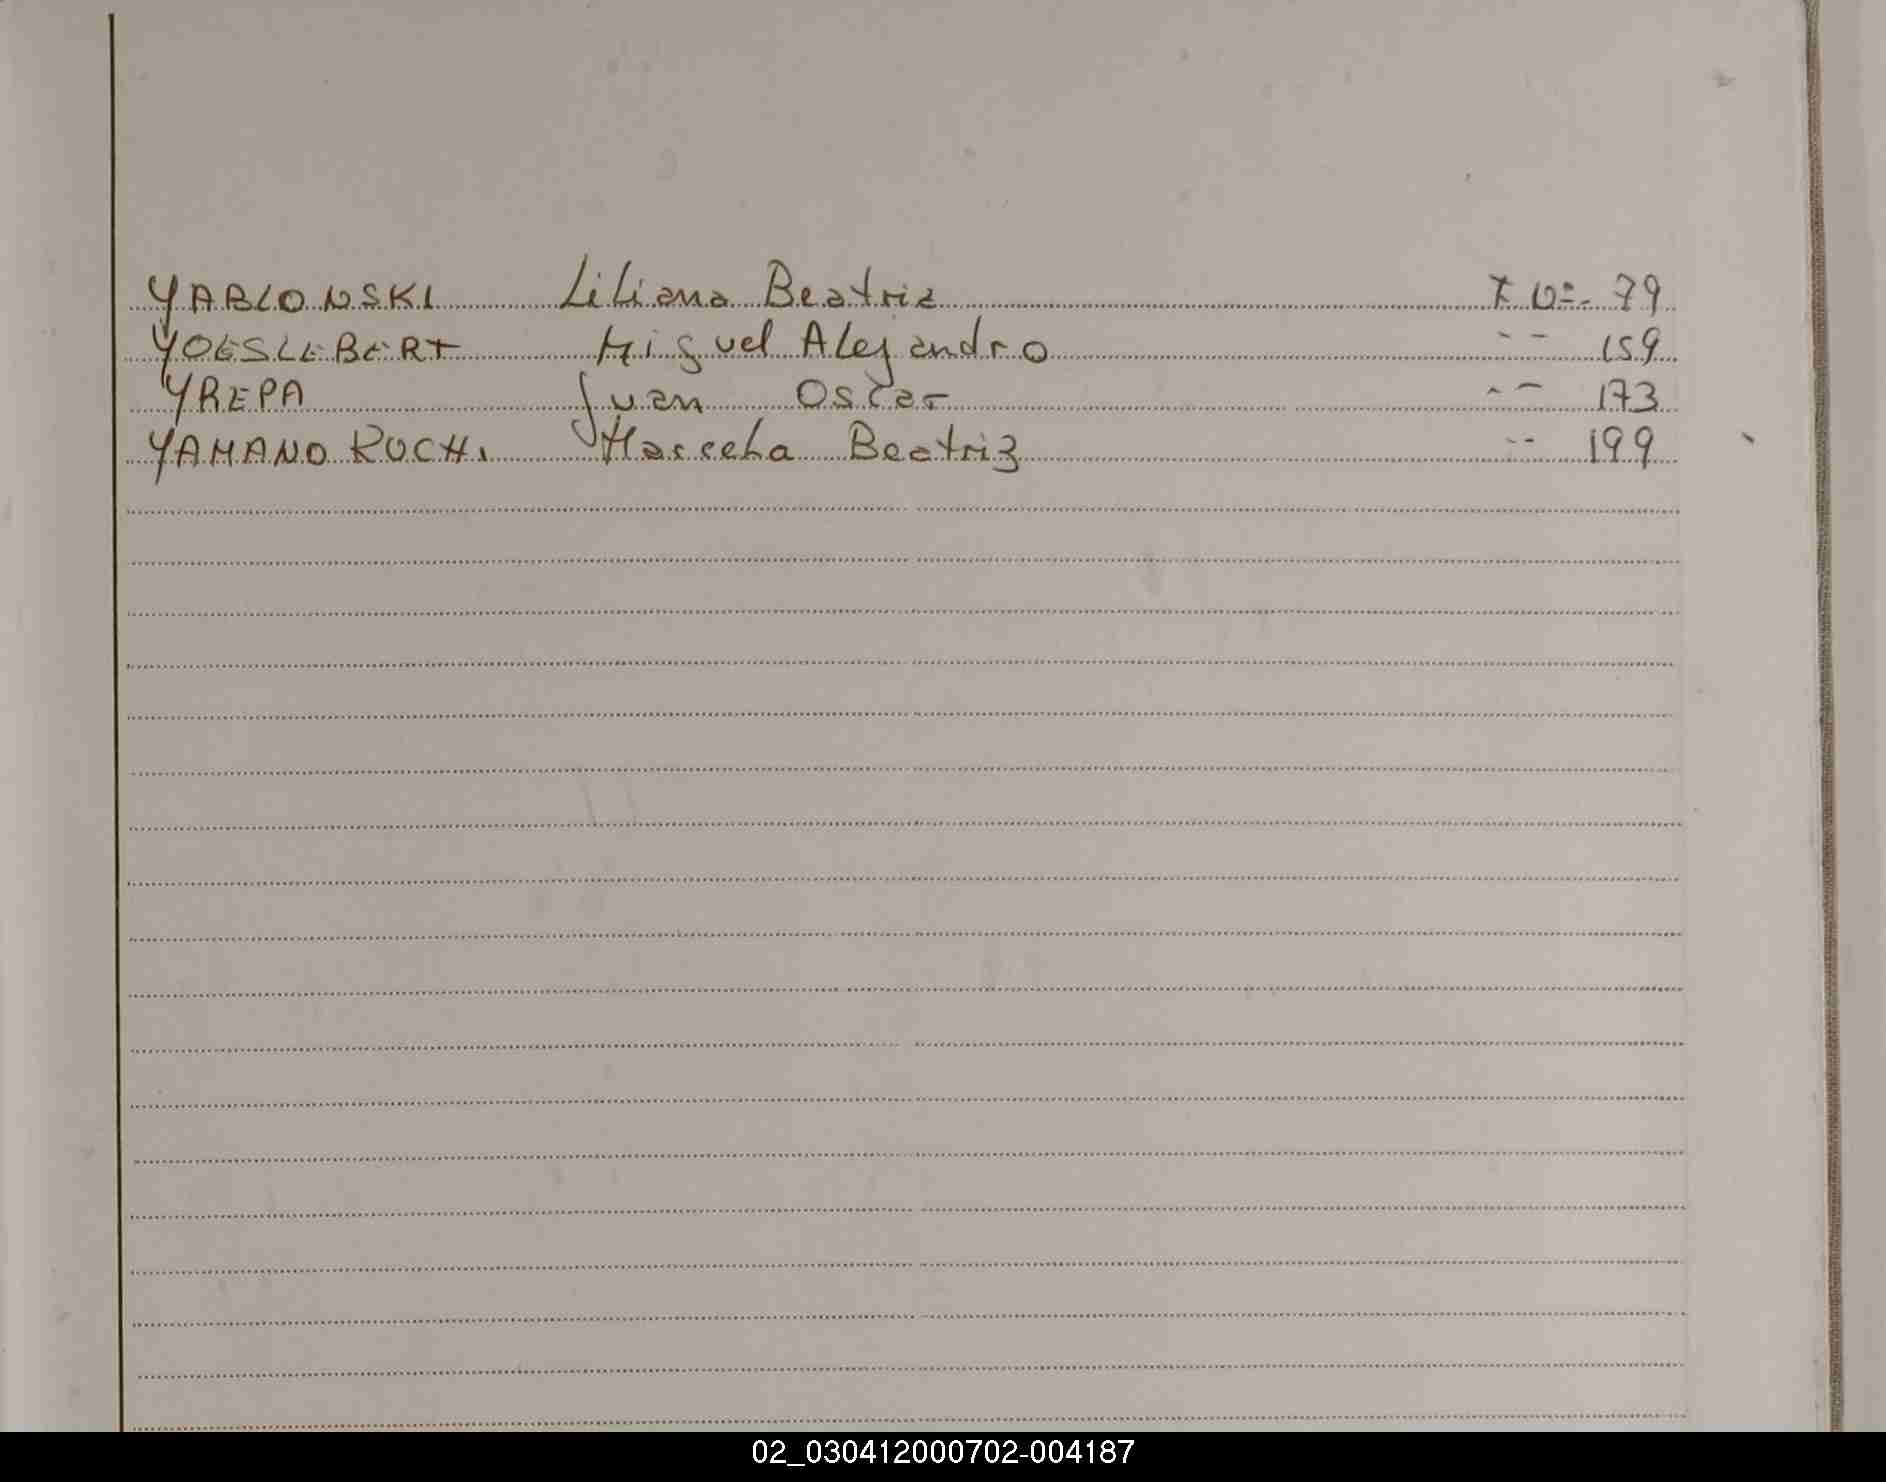 YABLONSKI Liliana Beatriz F Nº- 79
YOESLEBERT Miguel Alejandro -- 159
YREPA Juan Oscar -- 173
YAMANOKUCHI Marcela Beatriz -- 199
02_030412000702-004187